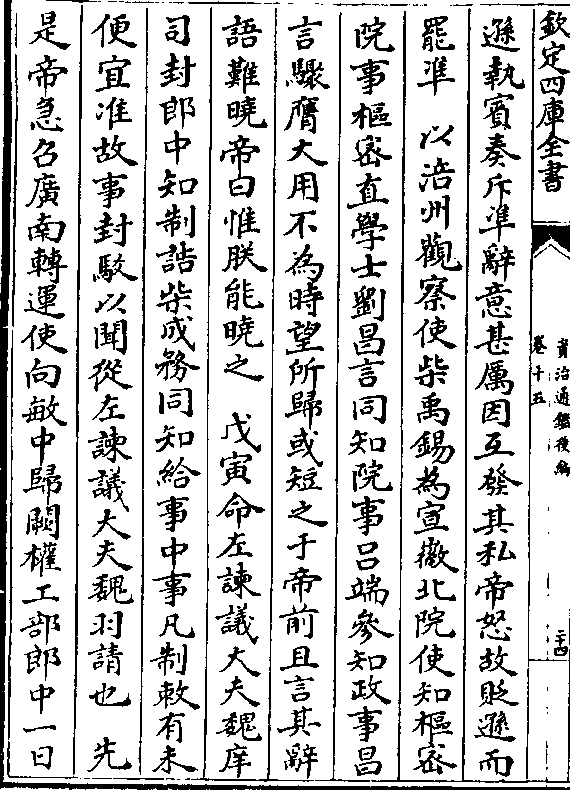 欽定四庫全書
資治通鑑後編
卷十五
二十四
遜執賓奏斥準辭意甚厲因互發其私帝怒故貶遜而
罷準　以涪州觀察使柴禹錫為宣徽北院使知樞密
院事樞密直學士劉昌言同知院事呂端參知政事昌
言驟膺大用不為時望所歸或短之于帝前且言其辭
語難曉帝曰惟朕能曉之　戊寅命左諫議大夫魏庠
司封郎中知制誥柴成務同知給事中事凡制敕有未
便宜准故事封駮以聞從左諫議大夫魏羽請也　先
是帝急召廣南轉運使向敏中歸闕權工部郎中一日